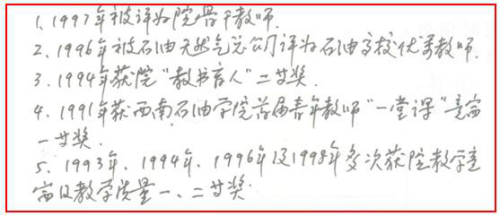 1. 1997年被评为院骨干教师.
2. 1996年被石油天然气总公司评为石油高校优秀教师.
3. 1994年获院“教书育人”二等奖.
4. 1991年获西南石油学院首届青年教师“一堂课”竞赛
一等奖.
5. 1993年、1994年、1996年及1998年多次获院教学竞
赛及教学质量一、二等奖.